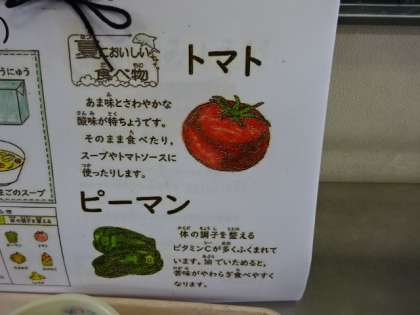 夏においしい
食べ物
トマト
あま味とさわやかな
酸味が特ちょうです。
そのまま食べたり、
スープやトマトソースに
使ったりします。
ピーマン
体の調子を整える
ビタミンCが多くふくまれて
います。油でいためると、
苦味がやわらぎ食べやすく
なります。
うにゅう
まごのスープ